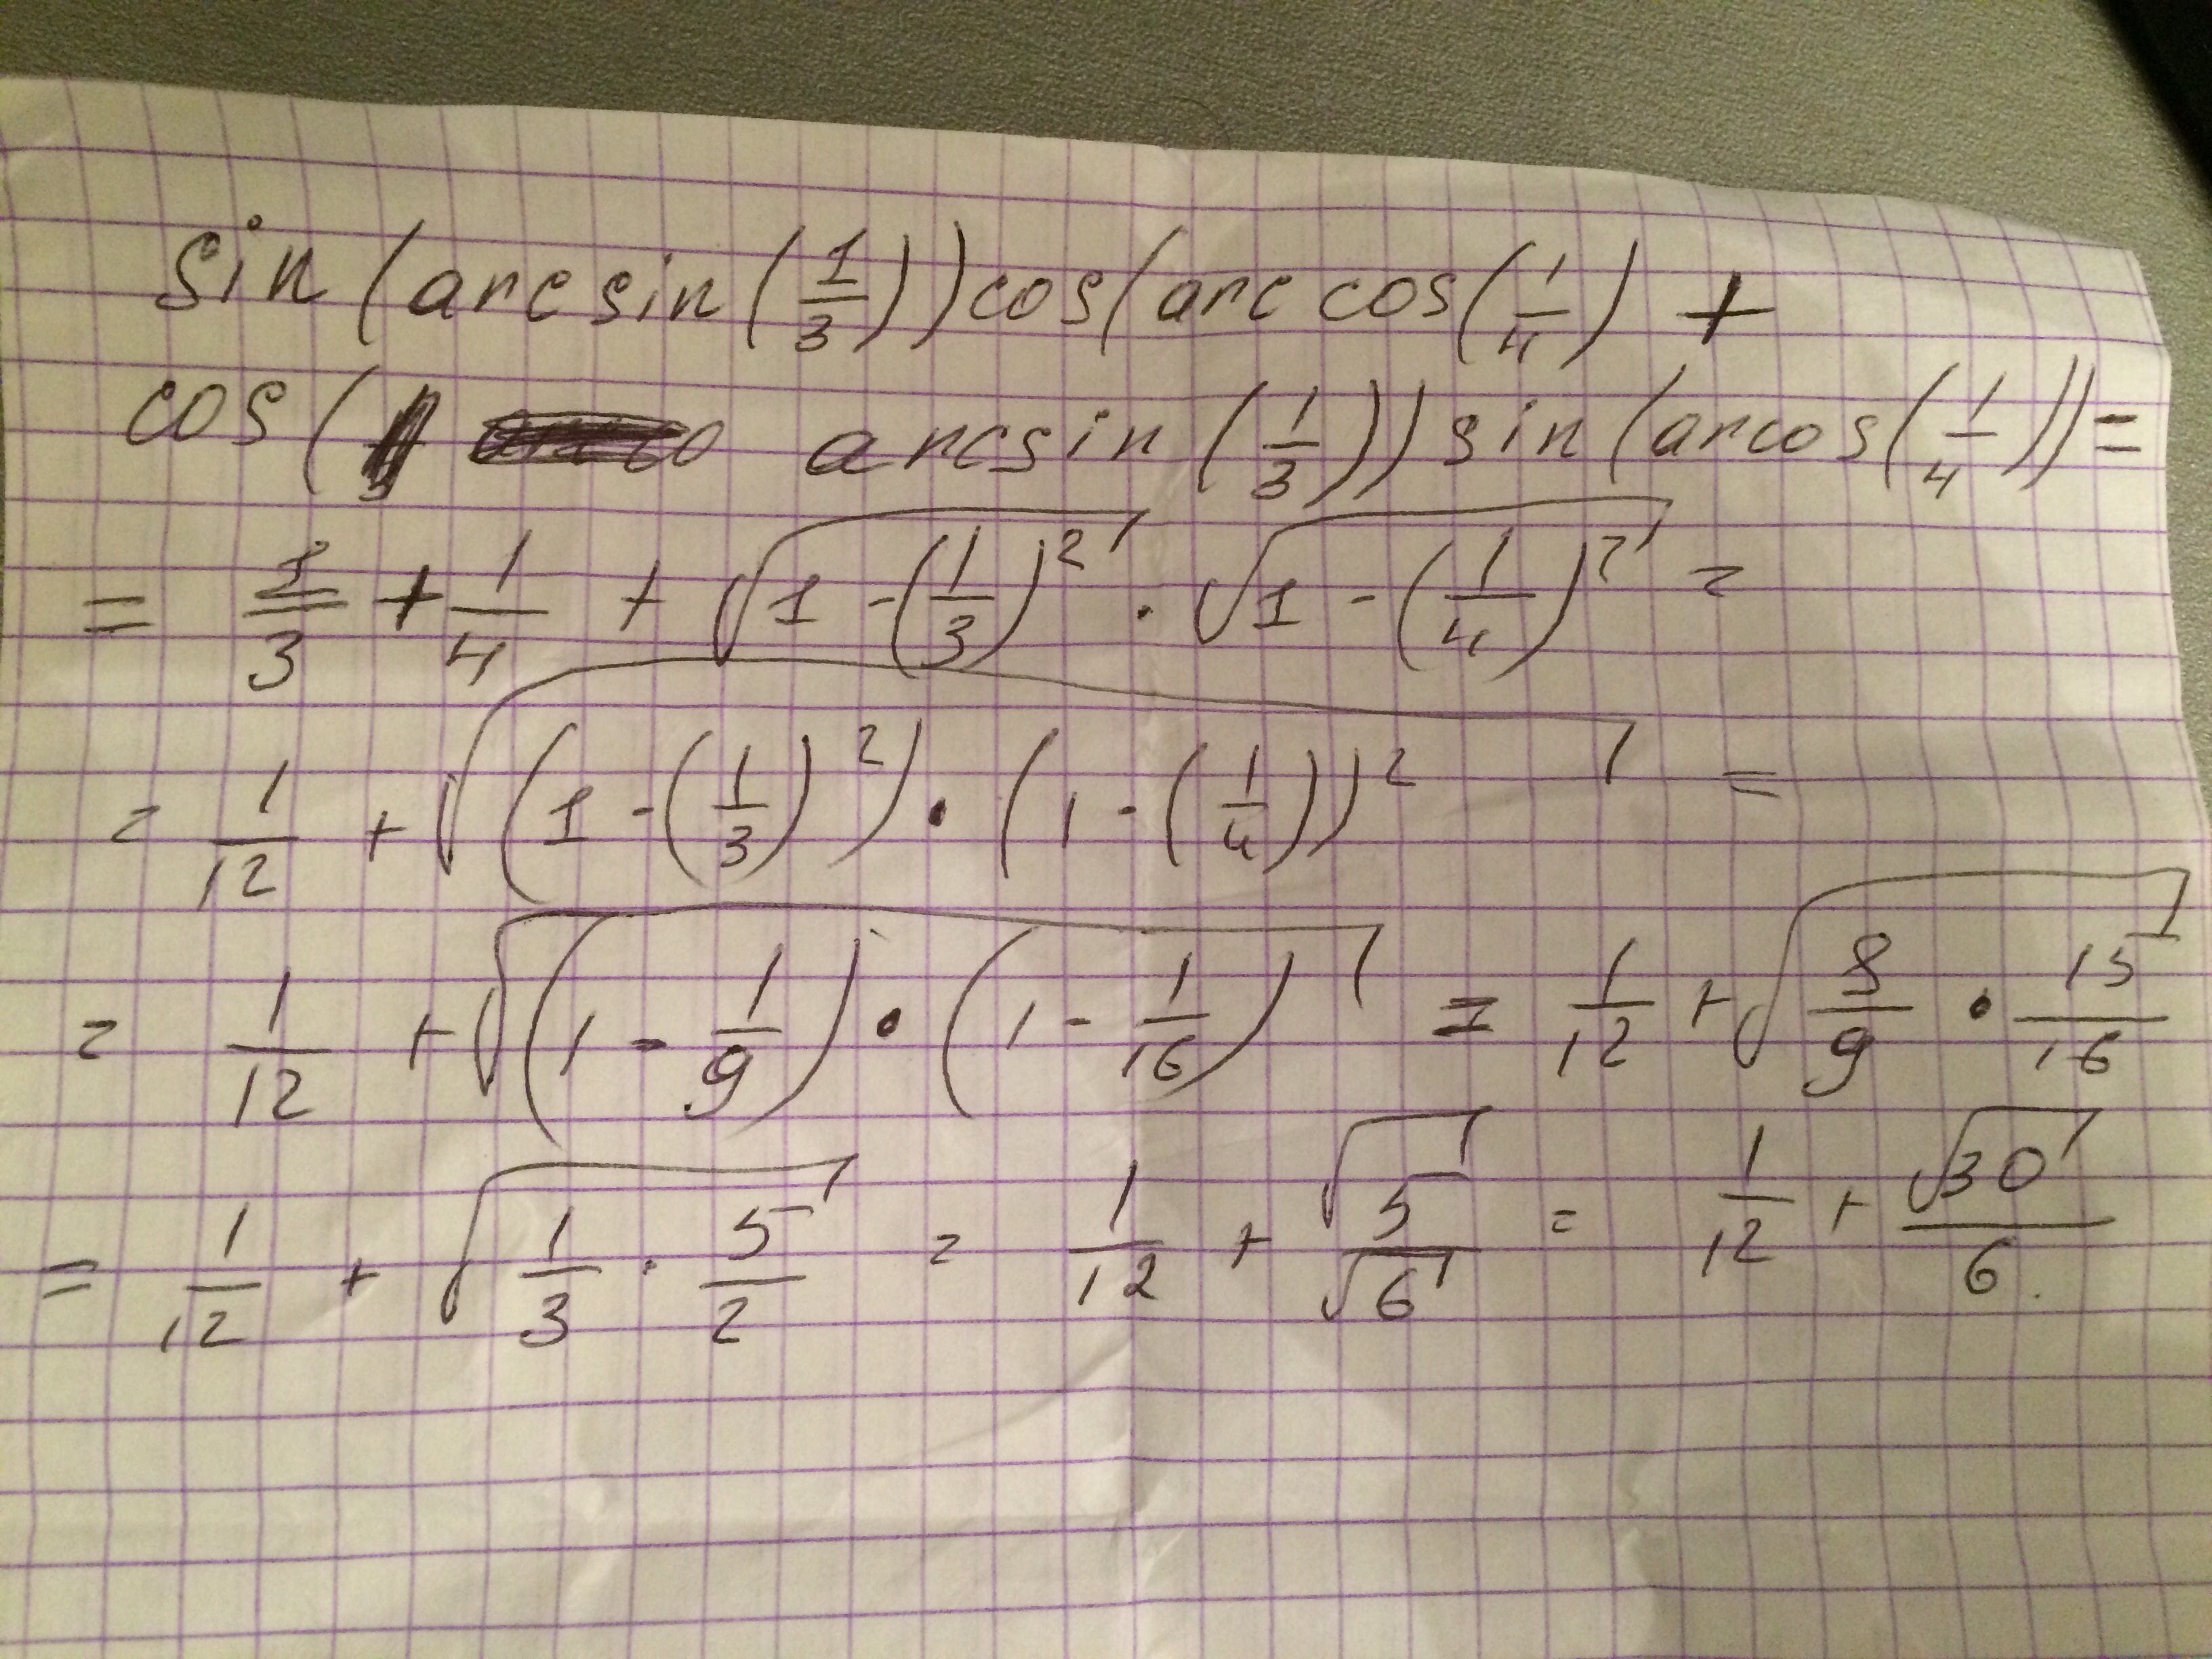 sin(arcsin(1/3))cos(arccos(1/4) +
cos( arcsin(1/3))sin(arcos(1/4)) =
= 1/3 + 1/4 + √(1 - (1/3)²) · √(1 - (1/4)²) =
= 1/12 + √((1 - (1/3)²) · (1 - (1/4))²) =
= 1/12 + √((1 - 1/9) · (1 - 1/16)) = 1/12 + √(8/9 · 15/16)
= 1/12 + √(1/3 · 5/2) = 1/12 + √5/√6 = 1/12 + √30/6.